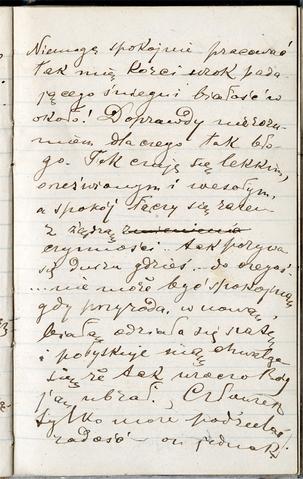 Niemogę spokojnie pracować
tak mię korci wzrok pada-
jącego śniegu i białość w
około! Doprawdy nierozu-
miem dlaczego tak bło-
go. Tak czuję się lekkim,
orzeźwionym i wesołym,
a spokój łączy się razem
z żądzą
czynności. tak porywa
się dusza gdzieś.. do czegoś
... nie może być spokojną
gdy przyroda, w nową,
białą odziała się szatę
i połyskuje nią chwaląc
się że tak uroczo Bóg
ją ubrał. Człowiek
tylko może podzielać
radość – on jednak